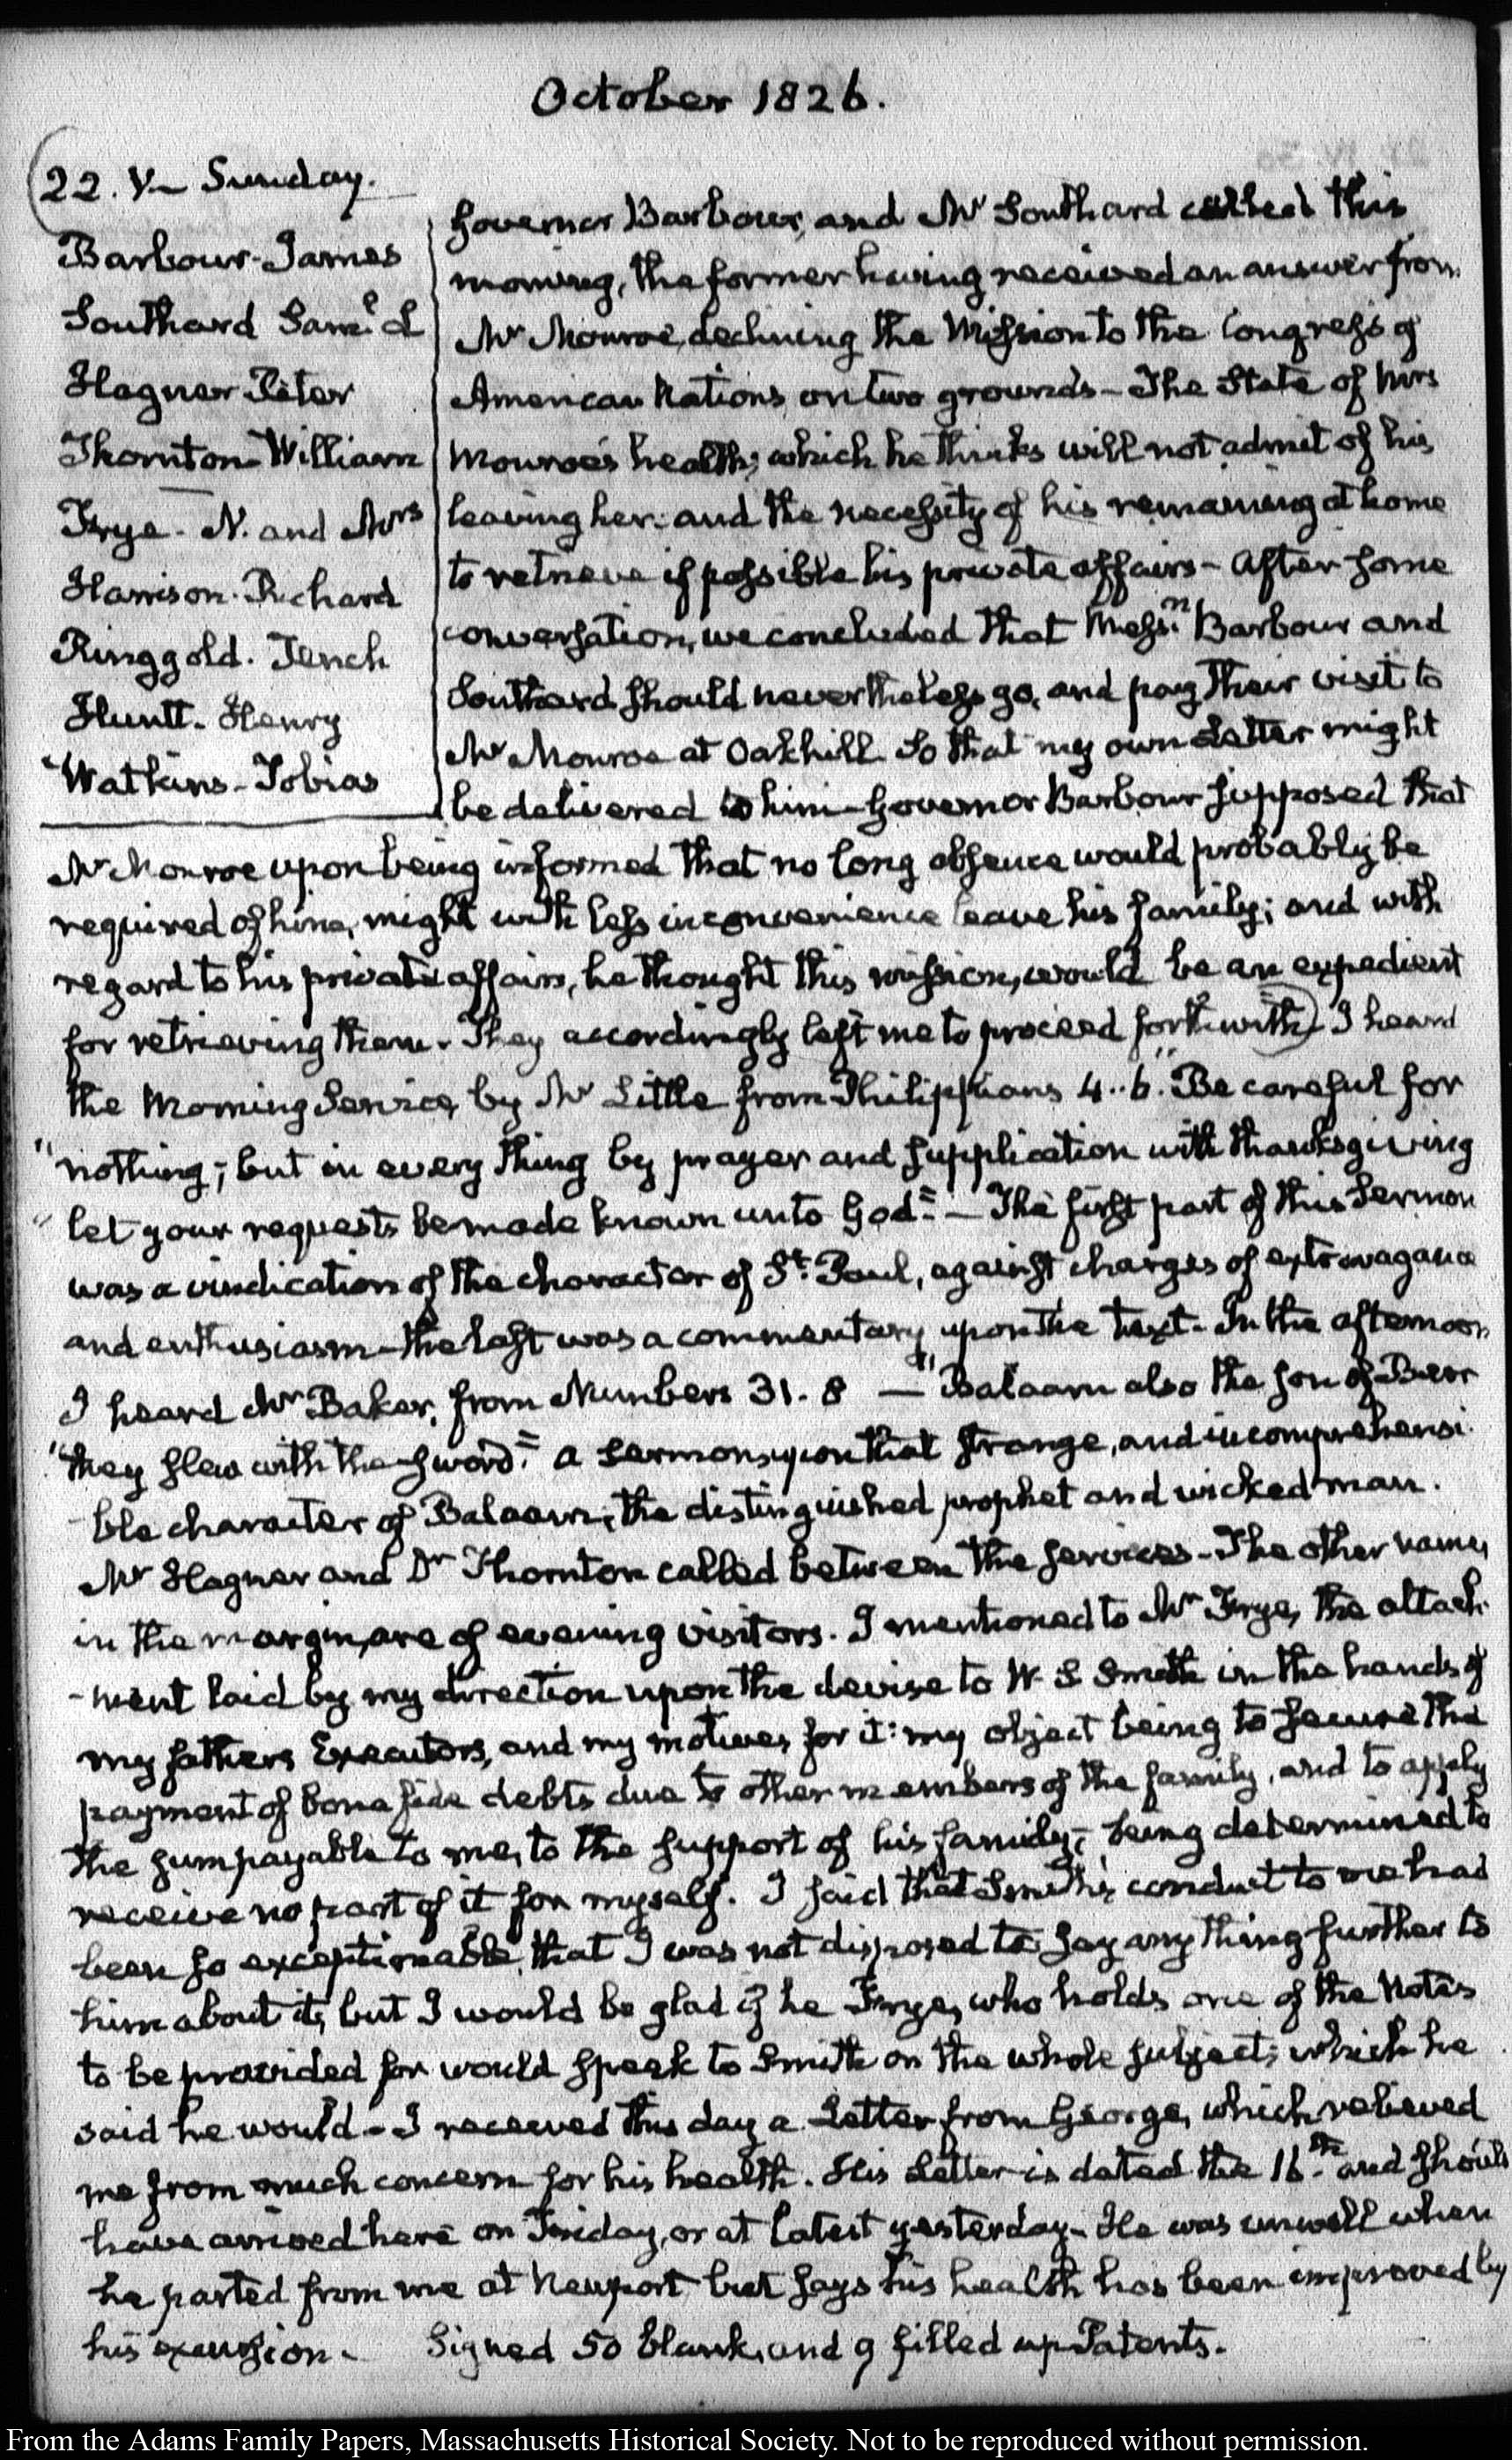 October 1826.
22. V— Sunday.
Barbour-James
Southard Saml. L
Hagner Peter
Thornton William
Frye- N. and Mrs
Harrison. Richard
Ringgold. Tench
Huntt- Henry
Watkins- Tobias
Governor Barbour, and Mr Southard called this
morning, the former having received an answer from
Mr Monroe, declining the Mission to the Congress of
American Nations, on two grounds- The State of Mrs
Monroe's health; which he thinks will not admit of his
leaving her: and the necessity of his remaining at home
to retrieve if possible his private affairs- After some
conversation, we concluded that Messrs. Barbour and
Southard should nevertheless go, and pay their visit to
Mr Monroe at Oakhill. So that my own Letter might
be delivered to him- Governor Barbour supposed that
Mr Monroe upon being informed that no long absence would probably be
required of him, might with less inconvenience leave his family; and with
regard to his private affairs, he thought this mission, would be an expedient
for retrieving them- They accordingly left me to proceed forthwith) I heard
the Morning Service, by Mr Little from Philippians 4..6. "Be careful for
"nothing; but in every thing by prayer and supplication with thanksgiving
"let your requests be made known unto God."— The first part of this Sermon
was a vindication of the character of St. Paul, against charges of extravagance
and enthusiasm- the last was a commentary upon the text- In the afternoon
I heard Mr Baker, from Numbers 31. 8 — "Balaam also the son of Beor
"they slew with the sword." a Sermon, upon that strange, and incomprehensi-
-ble character of Balaam; the distinguished prophet and wicked man.
Mr Hagner and Dr Thornton called between the services- The other names
in the margin, are of evening visitors. I mentioned to Mr Frye, the attach-
-ment laid by my direction upon the devise to W. S Smith in the hands of
my fathers Executors, and my motives for it: my object being to secure the
payment of bona fide debts due to other members of the family, and to apply
the sum payable to me, to the support of his family; being determined to
receive no part of it for myself. I said that Smith's conduct to me had
been so exceptionable, that I was not disposed to say any thing further to
him about it, but I would be glad if he Frye, who holds one of the Notes
to be provided for would speak to Smith on the whole subject; which he
said he would- I received this day a Letter from George, which relieved
me from much concern for his health. His Letter is dated the 16th. and should
have arrived here on Friday, or at latest yesterday- He was unwell when
he parted from me at Newport, but says his health has been improved by
his excursion- Signed 50 blank, and 9 filled up Patents.
From the Adams Family Papers, Massachusetts Historical Society. Not to be reproduced without permission.